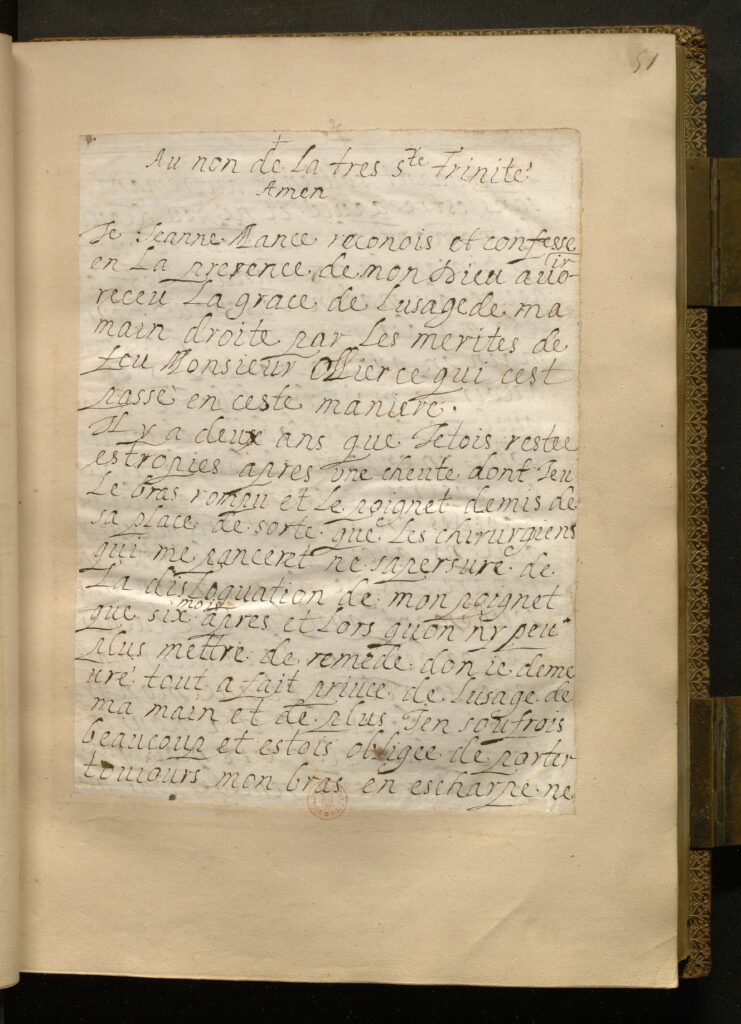 51
Au non de La tres ste Trinité
Amen
Je Jeanne Mance reconois et confesse
en La presence de mon Dieu avoir
receu La grace de Lusage de ma
main droite par Les merites de
feu Monsieur Ollier ce qui cest
passé en ceste maniere.
Il y a deux ans que Jetois restee
estropiés apres une cheute dont Jeu
Le bras rompu et Le poignet demis de
sa place de sorte que Les chirurgiens
qui me pancerent ne sapersure de
La disLoquation de mon poignet
que six mois apres et Lors quon ny peut
plus mettre de remede don ie deme
uré tout a fait privee de Lusage de
ma main et de plus Jen soufrois
beaucoup et estois obligee de porter
touiours mon bras en escharpe ne